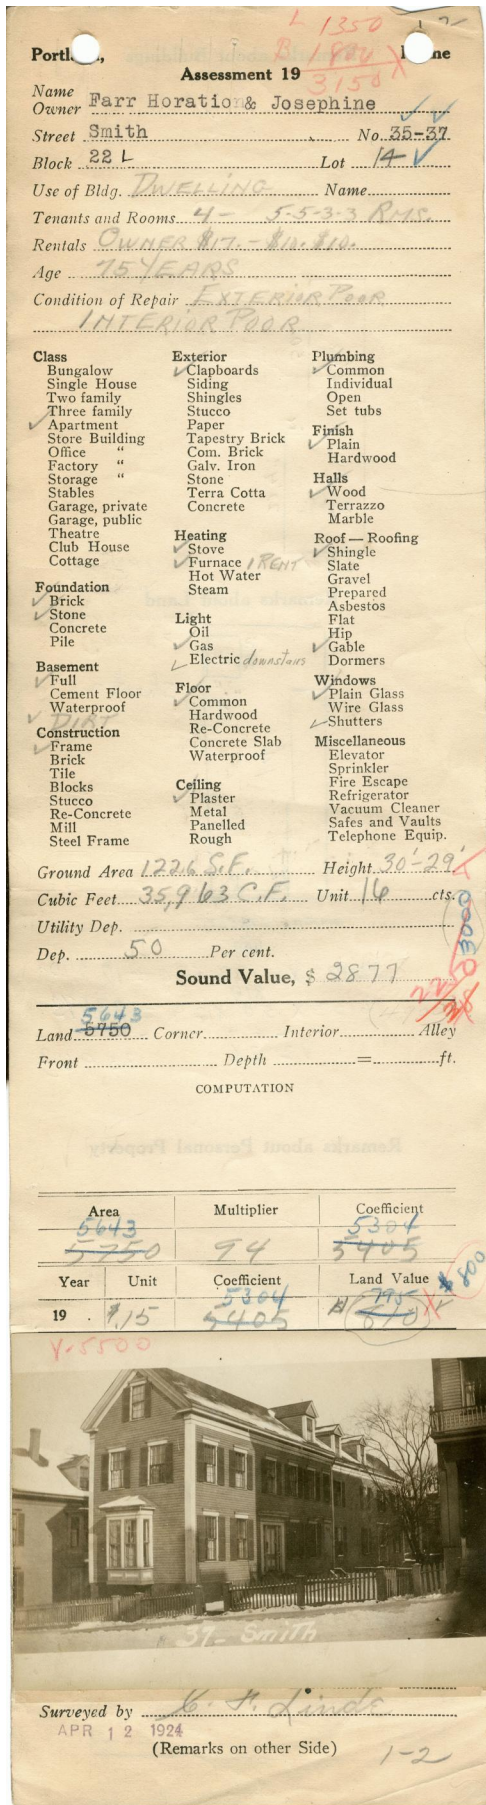 L 1350
B 1800
3150
Portland, Maine
Assessment 19
Name
Owner Farr Horation & Josephine
Street Smith No. 35-37
Block 22 L Lot 14
Use of Bldg. DWELLING Name
Tenants and Rooms 4- 5-5-3-3 RMS.
Rentals OWNER $17.-$10.$10.
Age 75 YEARS
Condition of Repair EXTERIOR POOR
INTERIOR POOR
Class
Bungalow
Single House
Two family
Three family
Apartment
Store Building
Office "
Factory "
Storage "
Stables
Garage, private
Garage, public
Theatre
Club House
Cottage
Foundation
Brick
Stone
Concrete
Pile
Basement
Full
Cement Floor
Waterproof
DIRT
Construction
Frame
Brick
Tile
Blocks
Stucco
Re-Concrete
Mill
Steel Frame
Exterior
Clapboards
Siding
Shingles
Stucco
Paper
Tapestry Brick
Com. Brick
Galv. Iron
Stone
Terra Cotta
Concrete
Heating
Stove
Furnace 1 RENT
Hot Water
Steam
Light
Oil
Gas
Electric downstairs
Floor
Common
Hardwood
Re-Concrete
Concrete Slab
Waterproof
Ceiling
Plaster
Metal
Panelled
Rough
Plumbing
Common
Individual
Open
Set tubs
Finish
Plain
Hardwood
Halls
Wood
Terrazzo
Marble
Roof—Roofing
Shingle
Slate
Gravel
Prepared
Asbestos
Flat
Hip
Gable
Dormers
Windows
Plain Glass
Wire Glass
Shutters
Miscellaneous
Elevator
Sprinkler
Fire Escape
Refrigerator
Vacuum Cleaner
Safes and Vaults
Telephone Equip.
Ground Area 1226 S.F. Height 30'-29'
Cubic Feet 35,963 C.F. Unit 16 cts.
Utility Dep.
Dep. 50 Per cent.
Sound Value, $ 2877
5643
Land 5750 Corner Interior Alley
Front Depth = ft.
COMPUTATION
Area Multiplier Coefficient
5643 5304
5750 94 5405
Year Unit Coefficient Land Value
5304 795 $800
19 $.15 5405 $ 810
V-5500
37- Smith
Surveyed by C. F. Linde
APR 12 1924
(Remarks on other Side)
1-2